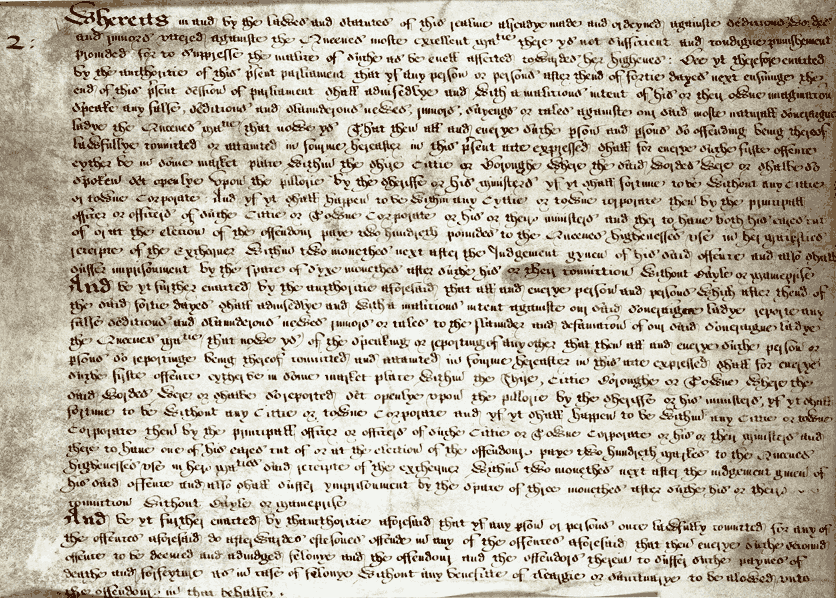 Whereas in and by the lawes and statutes of this realme alreadye made and ordeyned againste sedicious wordes
2:
and rumors uttered againste the Queenes moste excellent matie there ys not sufficient and condigne punishement
provided for to suppresse the malice of suche as be evell affected towardes her highenes: Bee yt therefore enacted
by the authoritie of this psent parliament that yf any person or persons after thend of fortie dayes next ensuinge the
end of this psent session of parliament shall advisedlye and with a malitious intent of his or their owne imaginacion
speake any false, sedicious and slaunderous newes, rumors, sayengs or tales againste our said moste naturall soveraigne
ladye the Queenes matie that nowe ys That then all and everye suche pson and psons so offending being thereof
lawfullye convicted or attainted in fourme hereafter in this psent acte expressed shall for everye suche firste offence
eyther be in some market place within the shire Cittie or Boroughe where the said wordes were or shalbe so
spoken set openlye upon the pillorie by the sheriffe or his ministers yf yt shall fortune to be without any Cittie
or towne Corporate: And yf yt shall happen to be within any Cyttie or towne corporate then by the principall
officer or officers of suche Cittie or Towne Corporate or his or their ministers and ther to have both his eares cut
of or at the election of the offendour paye two hundreth poundes to the Queenes highenesses use in her majesties
receipte of the Exchequer within two monethes next after the Judgement gyven of his said offence and also shall
suffer imprisonment by the space of syxe monethes after suche his or their conviction without bayle or maineprise
And be yt further enacted by the authoritie aforesaid that all and everye person and persons which after thend of
the said fortie dayes shall advisedlye and with a malitious intent againste our said soveraigne ladye reporte any
false sedicious and slaunderous newes rumors or tales to the slaunder and defamacion of our said soveraigne ladye
the Queenes matie (that nowe ys) of the speaking or reporting of any other that then all and everye suche person or
psons so reportinge being thereof convicted and attainted in fourme hereafter in this acte expressed shall for everye
suche firste offence eyther be in some market place within the Shire, Cittie Boroughe or Towne where the
said wordes were or shalbe so reported set openlye upon the pillorie by the sheriffe or his ministers, yf yt shall
fortune to be without any Cittie or towne Corporate and yf yt shall happen to be within any Cittie or towne
Corporate then by the principall officer or officers of suche Cittie or Towne Corporate or his or their ministers and
there to have one of his eares cut of or at the election of the offendour paye two hundreth markes to the Queenes
highenesses use in her maties said receipte of the exchequer within two monethes next after the iudgement gyven of
his said offence and also shall suffer ymprisonment by the space of three monethes after suche his or their
conviction without bayle or maineprise
And be yt further enacted by thauthoritie aforesaid that yf any pson or persons once lawfully convicted for any of
the offences aforesaid do afterwardes eftsones offende in any of the offences aforesaid that then everye suche second
offence to be deemed and adiudged felonye and the offendour and the offendors therein to suffer suche paynes of
deathe and forfeyture as in case of felonye without any benefitte of cleargie or sanctuarye to be alowed unto
the offendour in that behalfe.